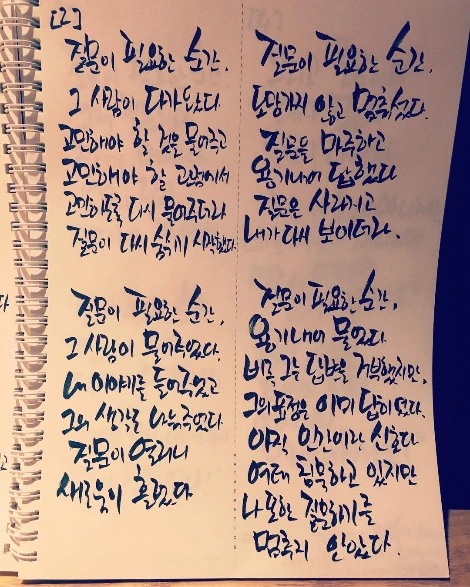 [2]
질문이 필요한 순간,
그 사람이 다가왔다
고민해야 할 점을 물어주고
고민해야 할 고랑에서
고민하도록 다시 물어주더라
질문이 다시 숨쉬기 시작했다.
질문이 필요한 순간,
그 사람이 물어주었다.
내 이야기를 들어주었고
그의 생각을 나눠주었다
질문이 열리니
새로움이 흘렀다
질문이 필요한 순간,
도망가지 않고 멈춰섰다.
질문을 마주하고
용기내어 답했다
질문은 사라지고
내가 다시 보이더라.
질문이 필요한 순간,
용기내어 물었다
비록 그는 답변을 거부했지만,
그의 표정은 이미 답이었다.
아직 인간이란 신호다
여태 침묵하고 있지만
나 또한 질문하기를
멈추지 않았다.